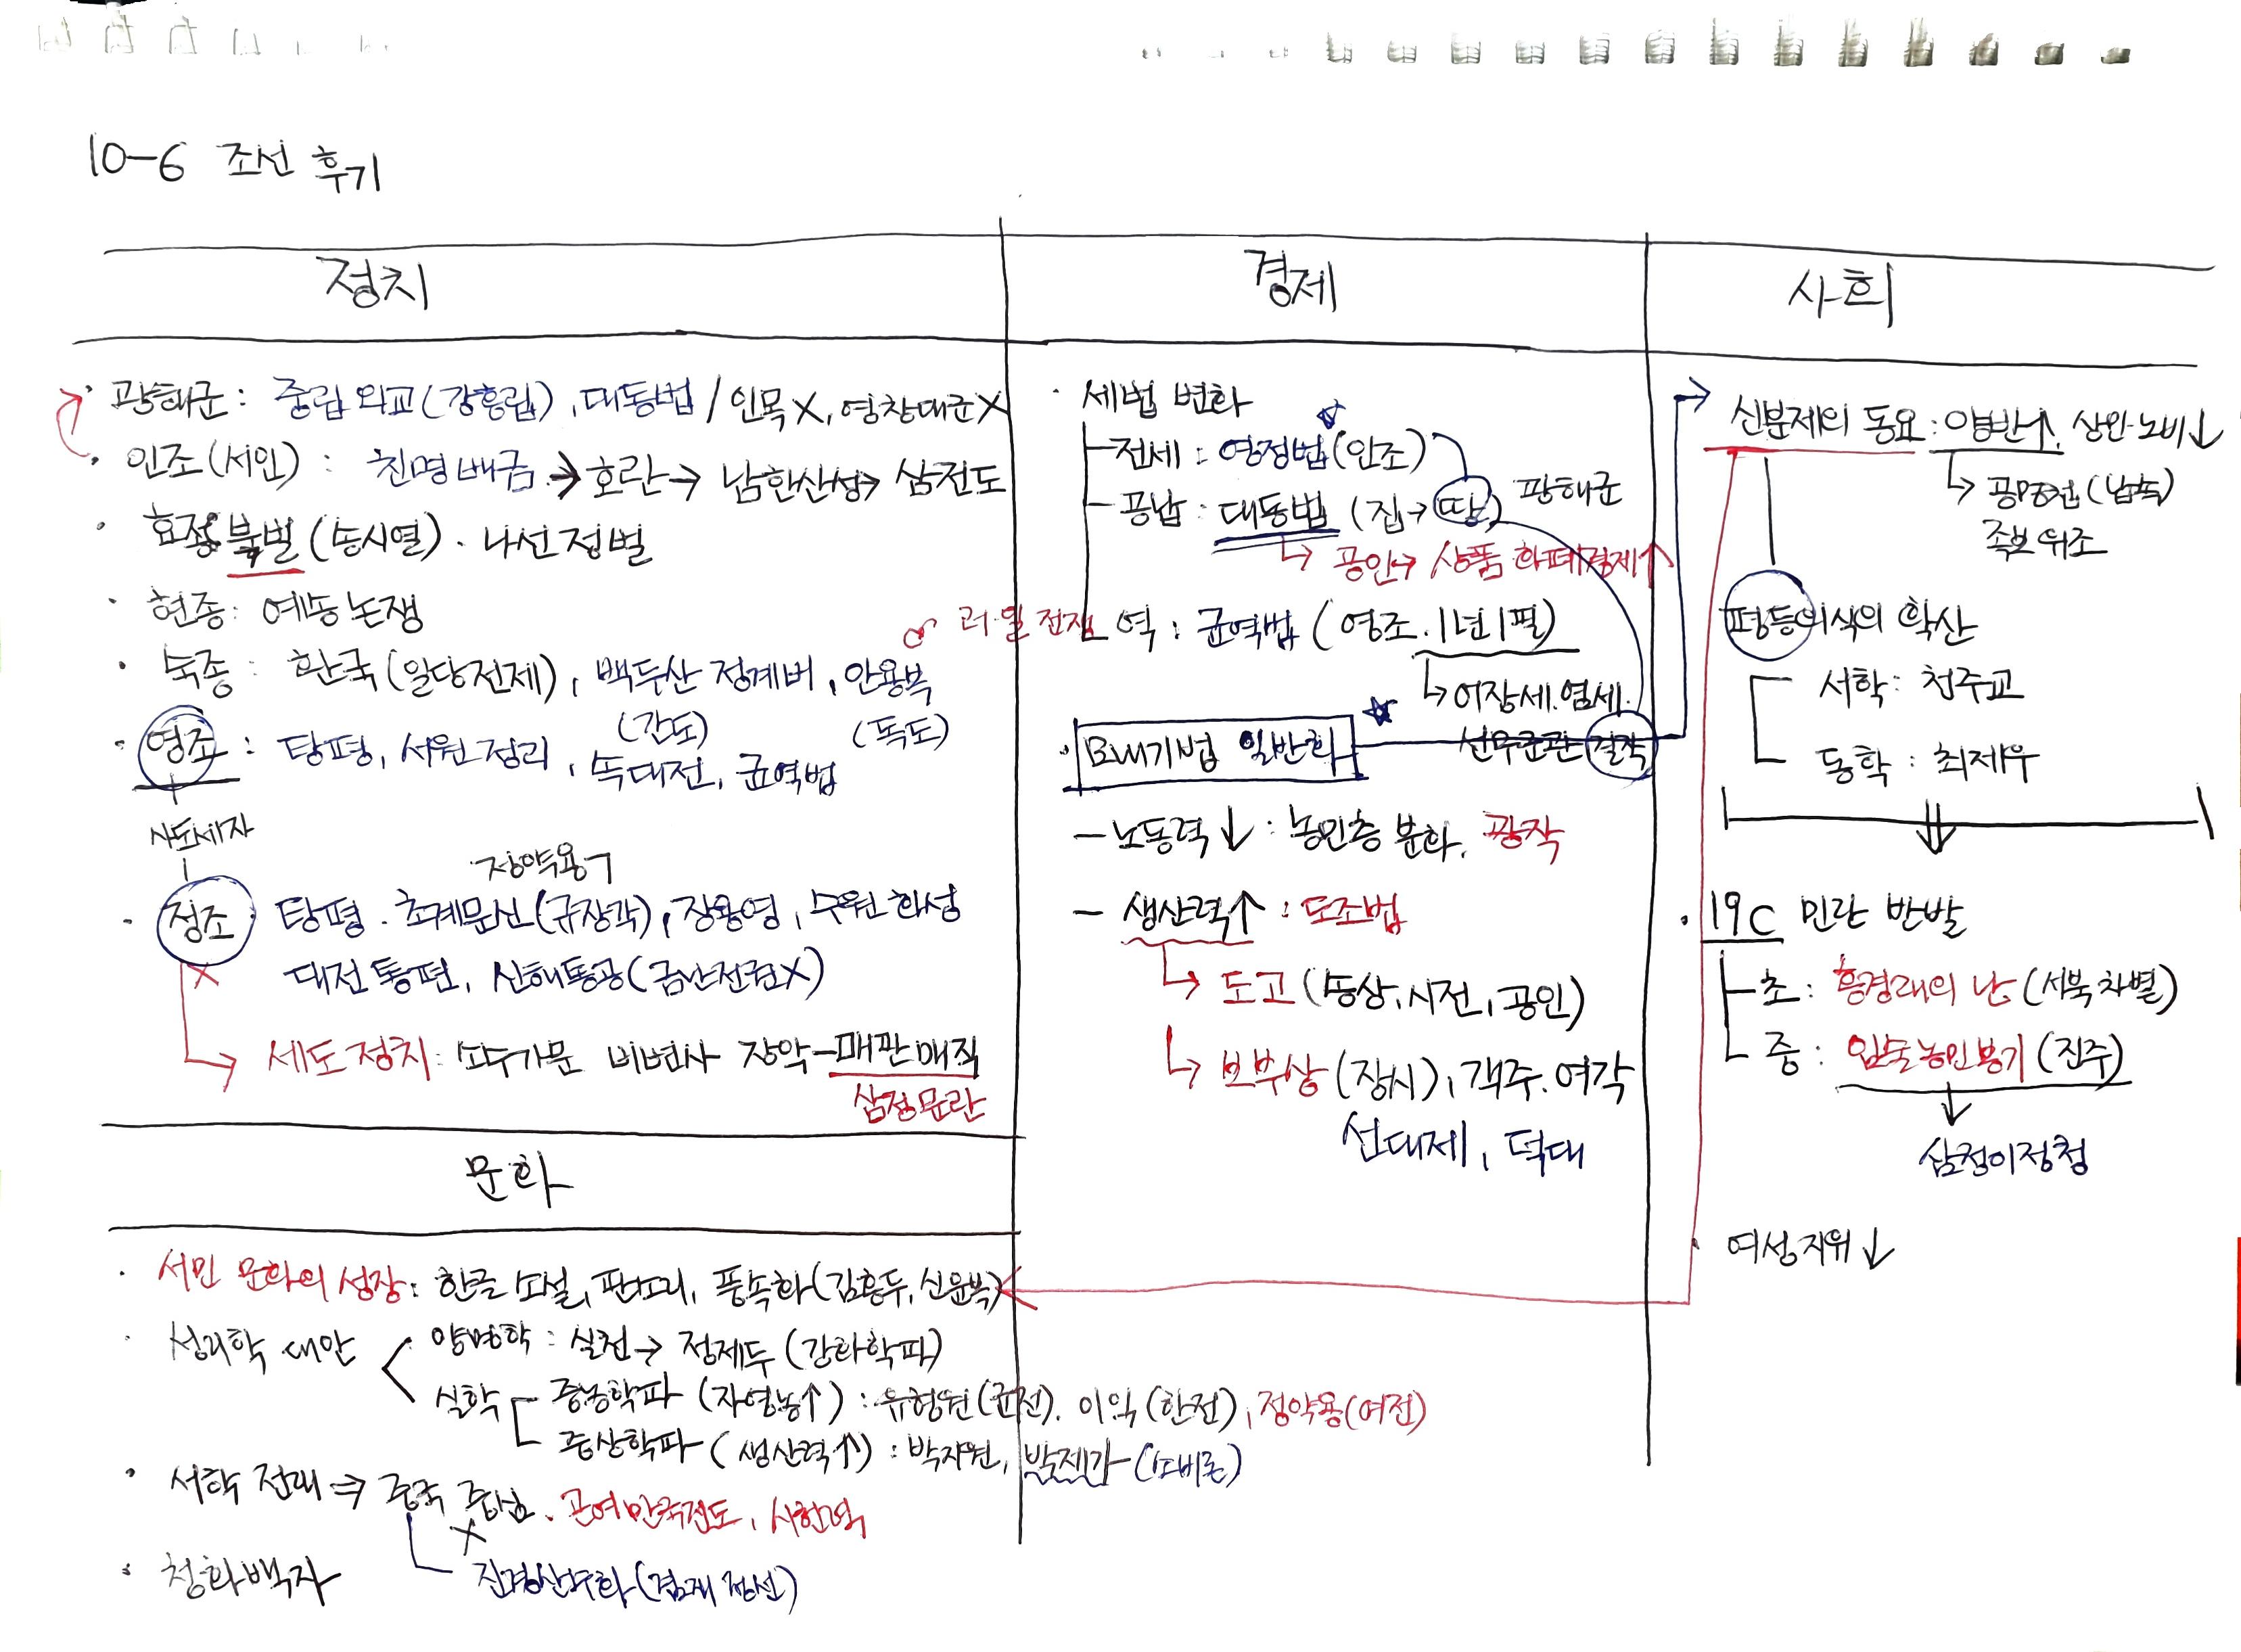 10-6 조선 후기
정치
광해군 : 중립외교(강홍립), 대동법 / 인목X, 영창대군X
인조(서인) : 친명배금 → 호란 → 남한산성 → 삼전도
효종 북벌 (송시열) · 나선정벌
현종 : 예송논쟁
숙종 : 환국(일당전제), 백두산 정계비, 안용복
(간도) (독도)
러·일 전쟁
영조 : 탕평, 서원정리, 속대전, 균역법
사도세자
정약용ㄱ
정조 탕평 · 초계문신(규장각), 장용영, 수원화성
대전통편, 신해통공(금난전권X)
세도정치 : 소수가문 비변사 장악 - 매관매직
삼정문란
문화
서민 문화의 성장 : 한글소설, 판소리, 풍속화(김홍두, 신윤복)
성리학 대안
양명학 : 실천 → 정제두 (강화학파)
실학
중농학파 (자영농↑) : 유형원(균전). 이익(한전), 정약용(여전)
중상학파 (생산력↑) : 박지원, 박제가 (소비론)
서학 전래 ⇒ 중국 중심 X. 곤여만국전도, 시헌력
진경산수화(겸재 정선)
청화백자
경제
세법 변화
전세 : 영정법(인조)
공납 : 대동법 (집→땅) 광해군
↳ 공인→ 상품 화폐경제↑
역 : 균역법 (영조. 1년1필)
↳ 어장세. 염세.
선무군관 결작
모내기법 일반화
- 노동력↓ : 농민층 분화, 광작
- 생산력↑ : 도조법
↳ 도고 (송상, 시전, 공인)
↳ 보부상 (장시), 객주. 여각
선대제, 덕대
사회
신분제의 동요 : 양반↑, 상민·노비↓
↳ 공명첩(납속)
족보위조
평등의식의 확산
서학 : 천주교
동학 : 최제우
19C 민란 반발
초 : 홍경래의 난 (서북 차별)
중 : 임술농민봉기 (진주)
↓
삼정이정청
여성지위↓